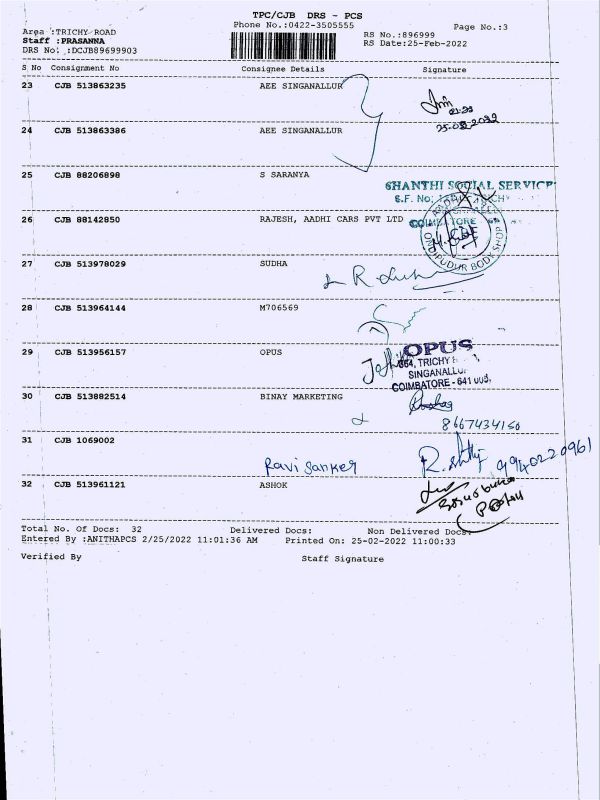 TPC/CJB DRS - PCS
Phone No.:0422-3505555
Page No.:3
Area :TRICHY ROAD
RS No.:896999
Staff :PRASANNA
RS Date:25-Feb-2022
DRS No. :DCJB89699903
S No Consignment No Consignee Details Signature
23 CJB 513863235 AEE SINGANALLUR
24 CJB 513863386 AEE SINGANALLUR
25 CJB 88206898 S SARANYA
SHANTHI SOCIAL SERVICE
S.F. No:
26 CJB 88142850 RAJESH, AADHI CARS PVT LTD
ONDIPUDUR BODY SHOP
27 CJB 513978029 SUDHA
28 CJB 513964144 M706569
29 CJB 513956157 OPUS
OPUS
TRICHY
SINGANALLU
COIMBATORE - 641 005.
30 CJB 513882514 BINAY MARKETING
8667434150
31 CJB 1069002
Ravi Sanker
9940220961
32 CJB 513961121 ASHOK
Total No. Of Docs: 32 Delivered Docs: Non Delivered Docs:
Entered By :ANITHAPCS 2/25/2022 11:01:36 AM Printed On: 25-02-2022 11:00:33
Verified By Staff Signature